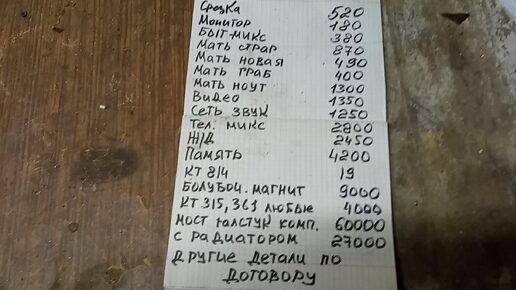 Срезка 520
Монитор 180
Быт-микс 380
Мать стар 870
Мать новая 490
Мать граб 400
Мать ноут 1300
Видео 1350
Сеть звук 1250
Тел. микс 2800
Ж/Д 2450
Память 4200
КТ 814 19
Магнит 9000
КТ 315, 361 любые 4000
Мост галстук комп. 60000
с радиатором 27000
другие детали по
договору